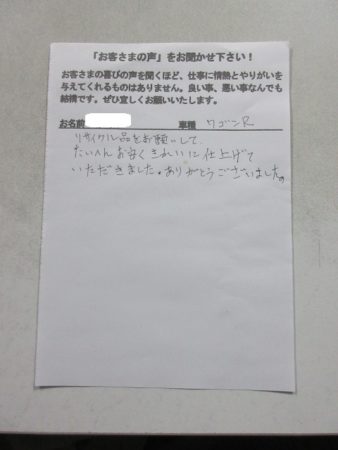 「お客さまの声」をお聞かせ下さい！
お客さまの喜びの声を聞くほど、仕事に情熱とやりがいを
与えてくれるものはありません。良い事、悪い事なんでも
結構です。ぜひ宜しくお願いいたします。
お名前 車種 ワゴンR
リサイクル品をお願いして、
たいへんお安くきれいに仕上げて
いただきました。ありがとうございました。